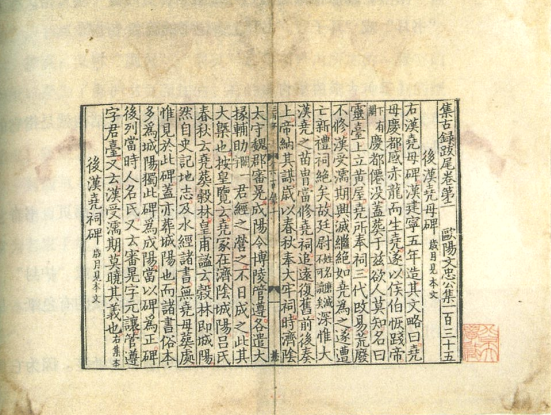 集古録跋尾卷第二　歐陽文忠公集一百三十五
後漢堯母碑 歲月見本文
右漢堯母碑漢建寧五年造其文略曰堯
母慶都感赤龍而生堯遂以侯伯恢踐帝
慶都僊没蓋葬于兹欲人莫知名曰
靈臺上立黄屋堯所奉祠三代改易荒廢
不修漢受濡期興滅繼絶如堯為之遂遭
亡新禮祠絶矣故廷尉 深惟大
漢堯之苗胄當修堯祠追遠復舊前後奏
上帝納其謀歲以春秋奉大牢祠時濟陰
太守魏郡審晃成陽令博陵管遵各遣大
掾輔助 君經之營之不日成之此其
大槩也按皇覽云堯冢在濟陰城陽吕氏
春秋云堯葬穀林皇甫謐云穀林即城陽
然自史記地志及水經諸書皆無堯母葬處
惟見於此碑蓋亦葬城陽也而諸書俗本
多為城陽獨此碑為成陽當以碑為正碑
後列當時人名氏又云審晃字元讓管遵
字君臺又云漢受濡期莫曉其義也 右集本
後漢堯祠碑 歲月見本文